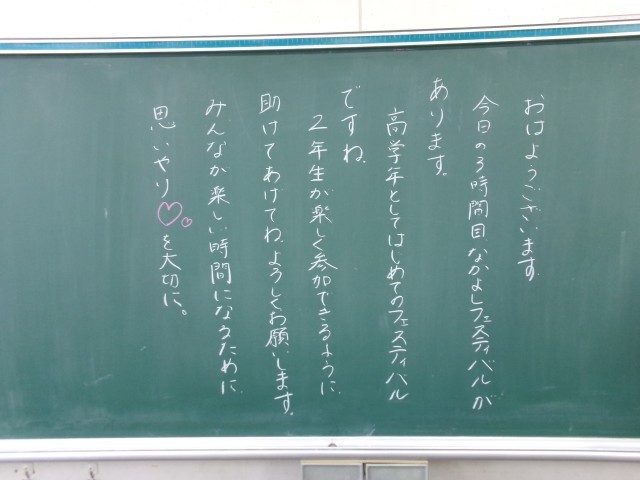 おはようございます
今日の3時間目なかよしフェスティバルが
あります。
高学年としてはじめてのフェスティバル
ですね。
2年生が楽しく参加できるように
助けてあげてね。よろしくお願いします。
みんなが楽しい時間になるために
思いやり♡♡を大切に。